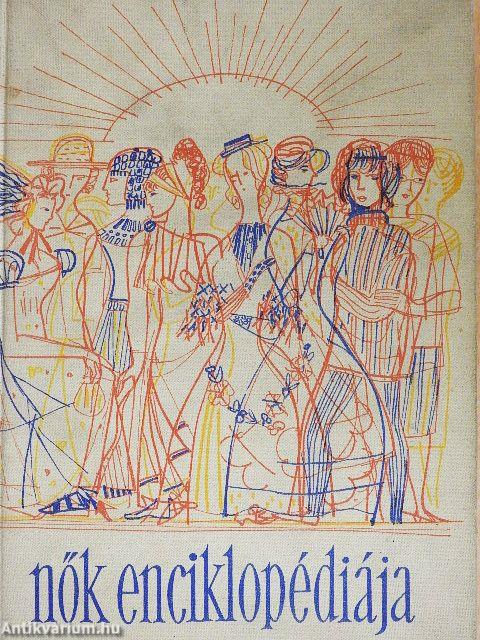 nők enciklopédiája
Antikvarium.hu